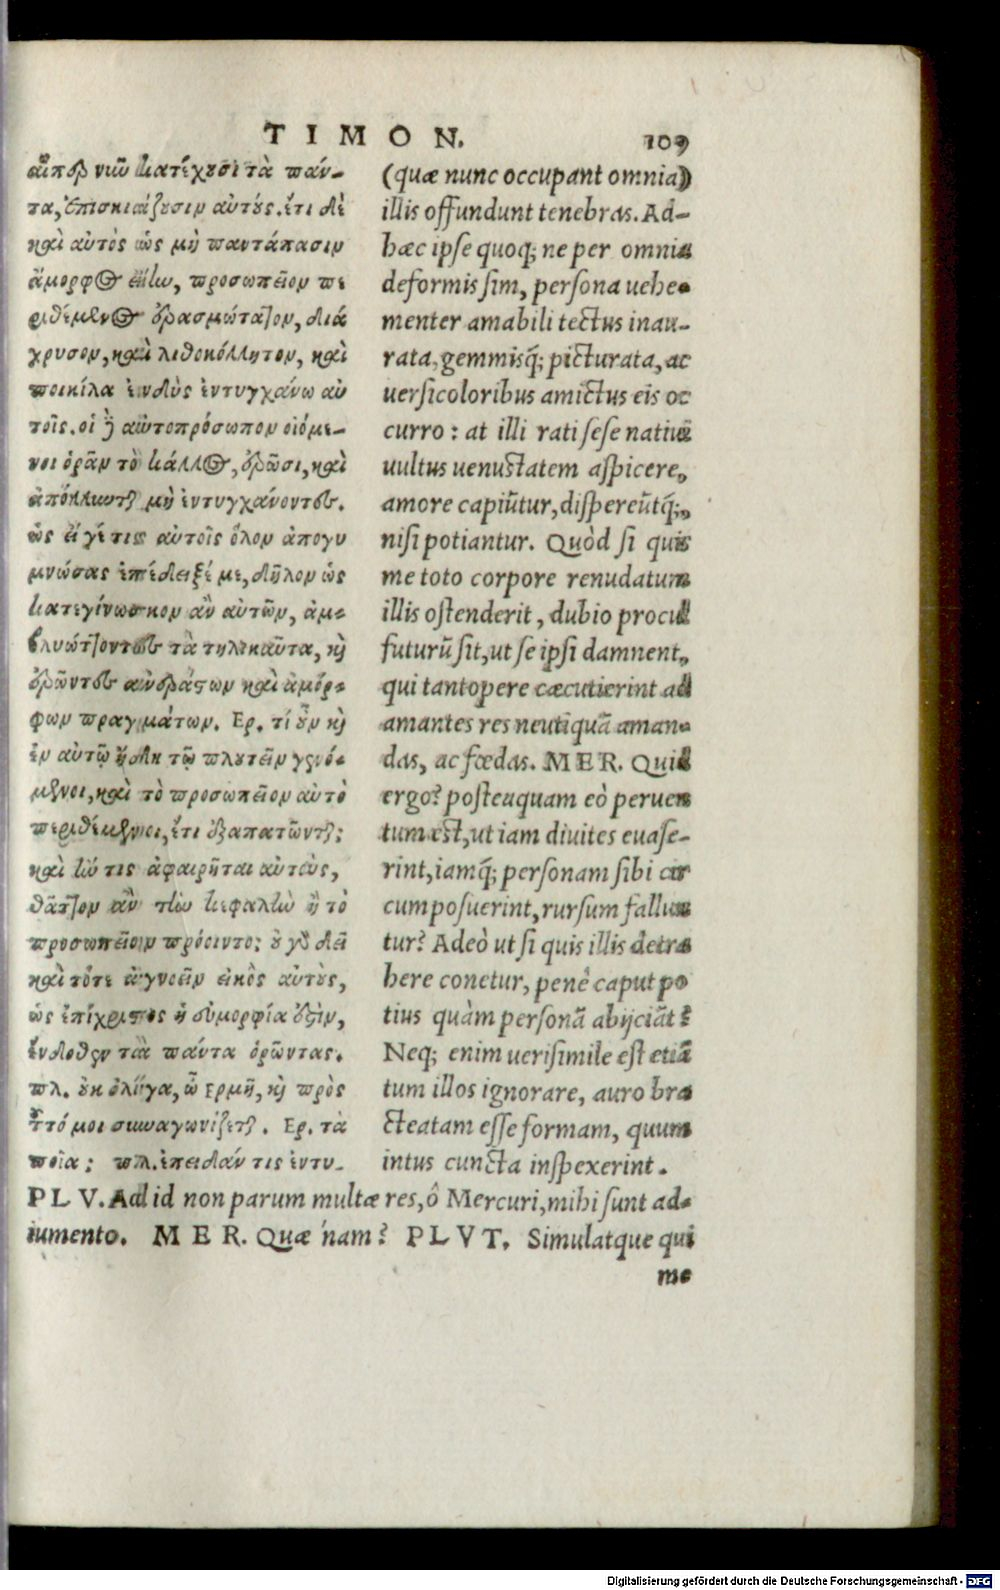 TIMON. 109
αἵπερ νῦν κατέχουσι τὰ πάν-
τα, ἐπισκιάζουσιν αὐτούς. ἔτι δὲ
καὶ αὐτὸς ὡς μὴ παντάπασιν
ἄμορφος εἴην, προσωπεῖον πε
ριθέμενος ἐρασμιώτατον, διά
χρυσον, καὶ λιθοκόλλητον, καὶ
ποικίλα ἐνδὺς ἐντυγχάνω αὐ
τοῖς. οἱ δὲ αὐτοπρόσωπον οἰόμε-
νοι ὁρᾶν τὸ κάλλος, ἐρῶσι, καὶ
ἀπόλλυνται μὴ ἐντυγχάνοντες.
ὡς εἴ γέ τις αὐτοῖς ὅλον ἀπογυ
μνώσας ἐπέδειξέ με, δῆλον ὡς
κατεγίνωσκον ἂν αὐτῶν, ἀμ-
βλυώττοντες τὰ τηλικαῦτα, καὶ
ἐρῶντες ἀνεράστων καὶ ἀμόρ-
φων πραγμάτων. Ερ. τί οὖν καὶ
ἐν αὐτῷ ἤδη τῷ πλουτεῖν γενό-
μενοι, καὶ τὸ προσωπεῖον αὐτὸ
περιθέμενοι, ἔτι ἐξαπατῶνται;
καὶ ἤν τις ἀφαιρῆται αὐτούς,
θᾶττον ἂν τὴν κεφαλὴν ἢ τὸ
προσωπεῖον πρόοιντο; οὐ γὰρ δεῖ
καὶ τότε ἀγνοεῖν εἰκὸς αὐτούς,
ὡς ἐπίχριστος ἡ εὐμορφία ἐστίν,
ἔνδοθεν τὰ πάντα ὁρῶντας.
πλ. οὐκ ὀλίγα, ὦ Ερμῆ, καὶ πρὸς
τοῦτό μοι συναγωνίζεται. Ερ. τὰ
ποῖα; πλ. ἐπειδάν τις ἐντυ-
(quæ nunc occupant omnia)
illis offundunt tenebras. Ad-
hæc ipse quoq; ne per omnia
deformis sim, persona uehe-
menter amabili tectus inau-
rata, gemmisq́; picturata, ac
uersicoloribus amictus eis oc
curro: at illi rati sese natiui
uultus uenustatem aspicere,
amore capiũtur, dispereũtq́;,
nisi potiantur. Quòd si quis
me toto corpore renudatum
illis ostenderit, dubio procul
futurũ sit, ut se ipsi damnent,
qui tantopere cæcutierint ad
amantes res neutiquã aman-
das, ac fœdas. MER. Quid
ergo? posteaquam eò peruen
tum est, ut iam diuites euase-
rint, iamq́; personam sibi cir
cumposuerint, rursum fallun
tur? Adeò ut si quis illis detra
here conetur, penè caput po
tius quàm personã abijciãt?
Neq; enim uerisimile est etiã
tum illos ignorare, auro bra
cteatam esse formam, quum
intus cuncta inspexerint.
PLV. Ad id non parum multæ res, ô Mercuri, mihi sunt ad-
iumento. MER. Quæ nam? PLVT. Simulatque qui
me
Digitalisierung gefördert durch die Deutsche Forschungsgemeinschaft - DFG